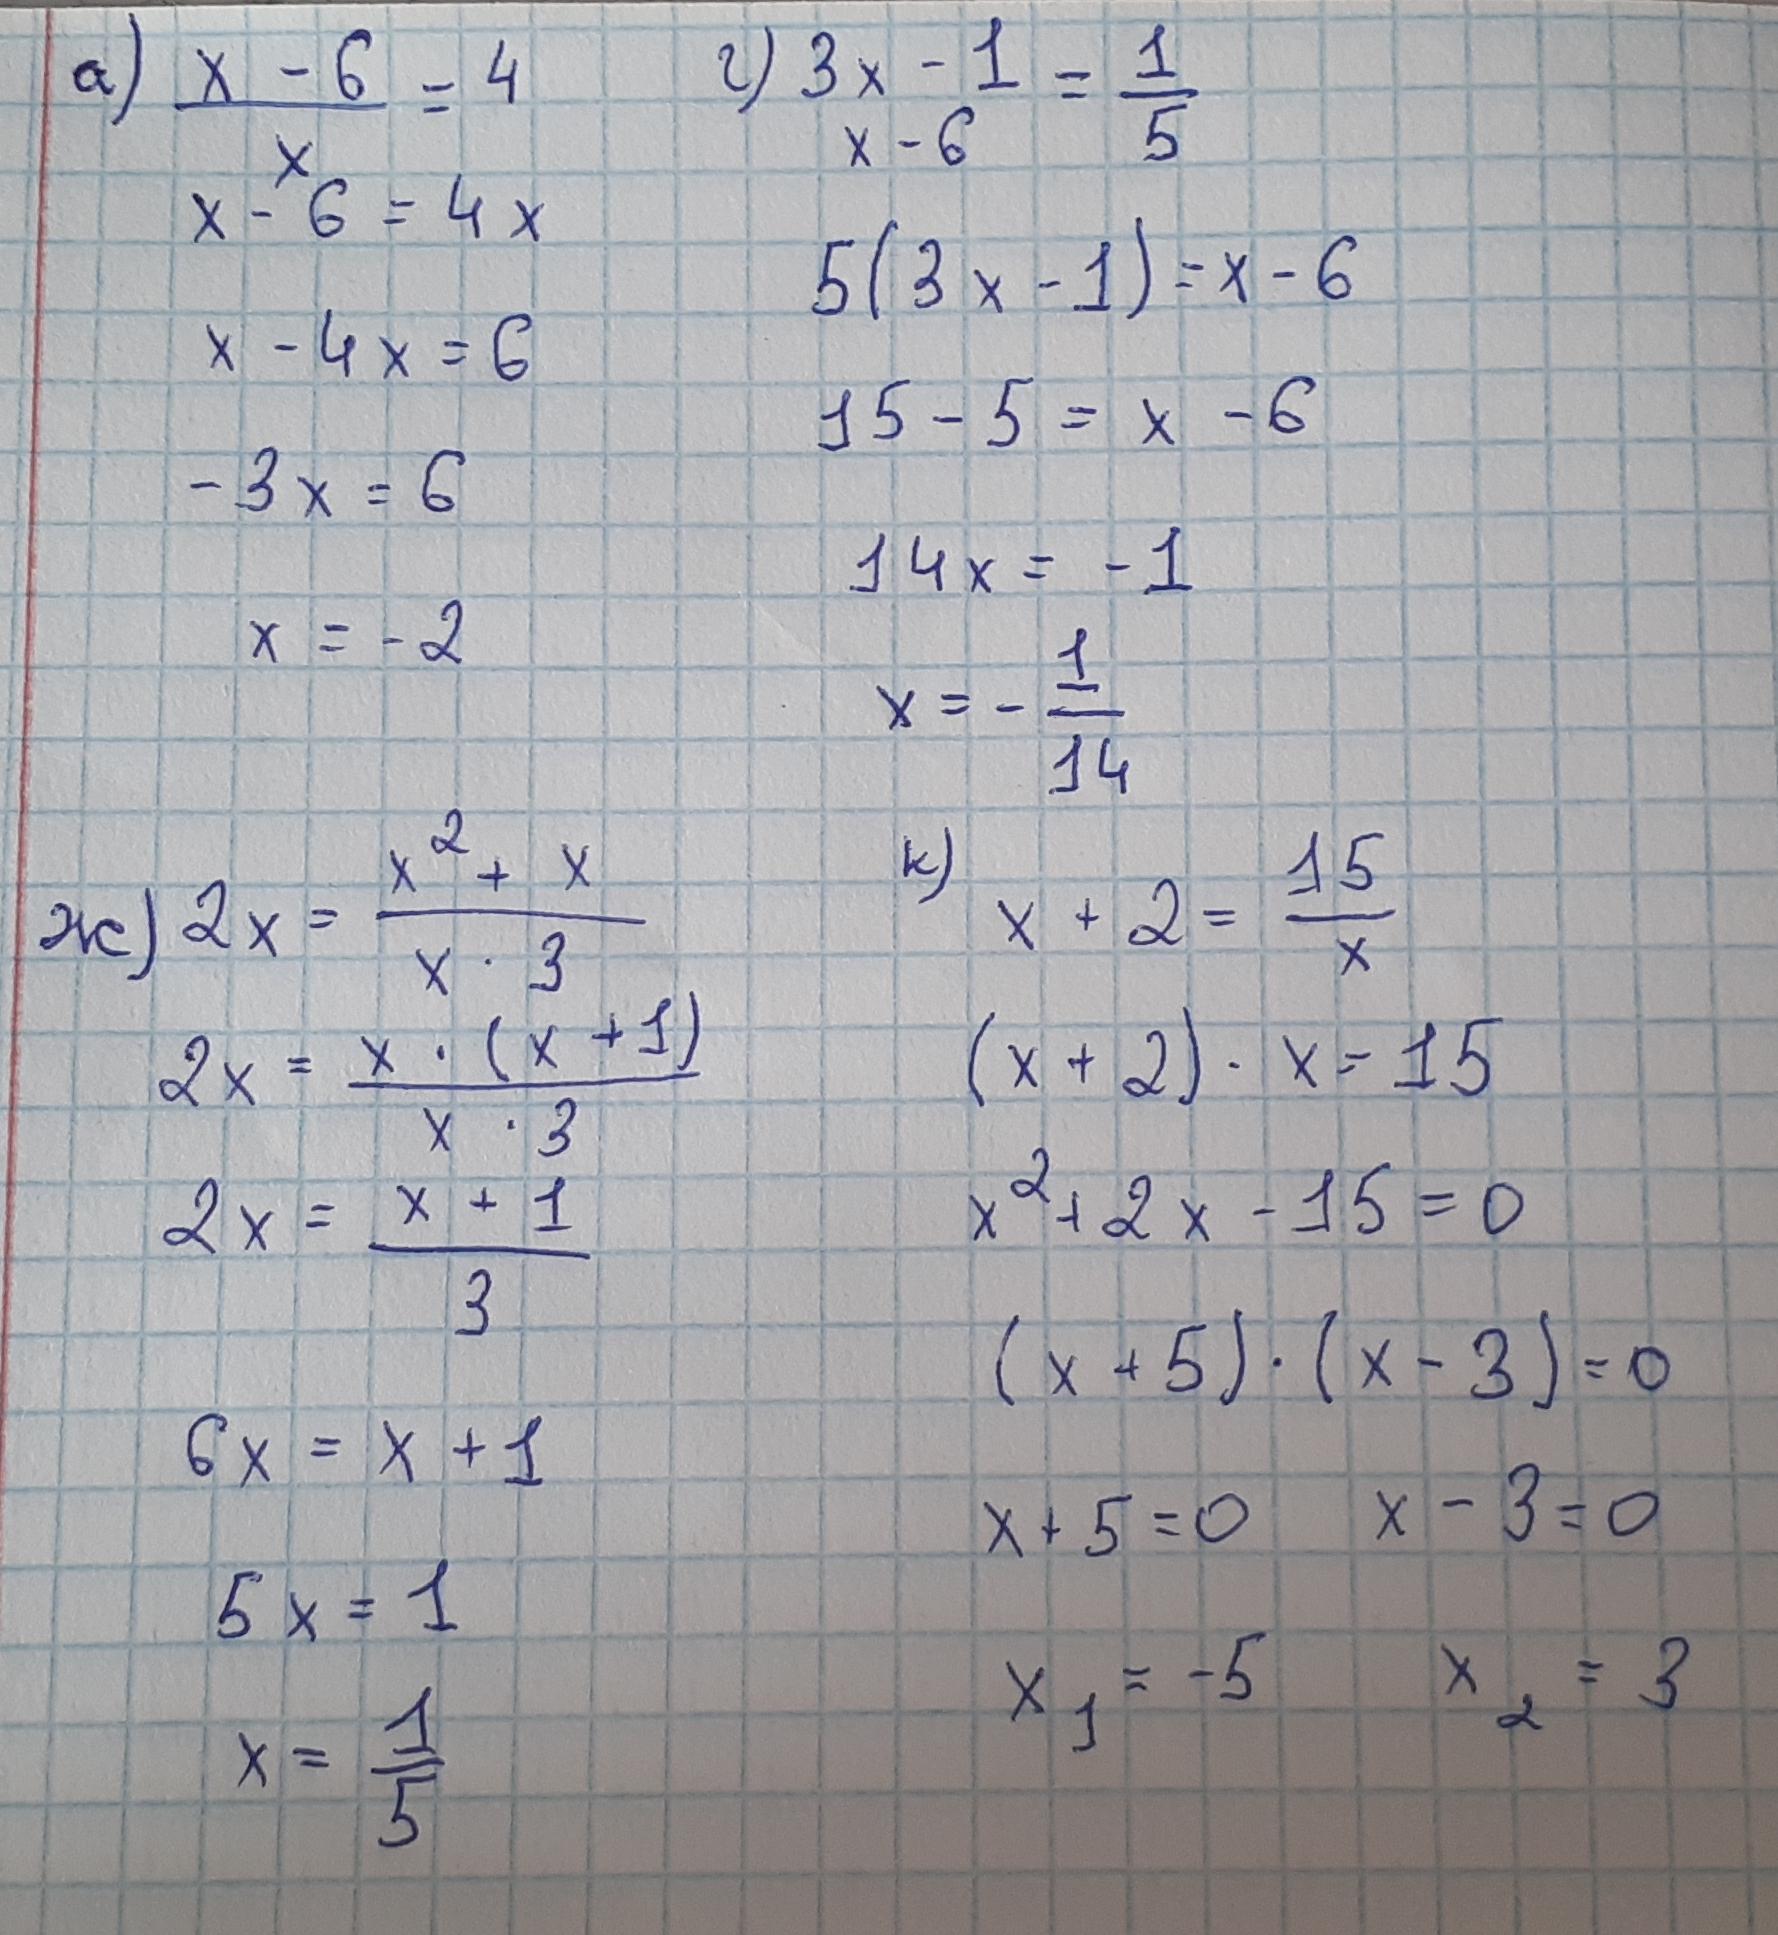 а) x - 6 / x = 4
x - 6 = 4x
x - 4x = 6
-3x = 6
x = -2
г) 3x - 1 / x - 6 = 1/5
5(3x - 1) = x - 6
15 - 5 = x - 6
14x = -1
x = - 1/14
ж) 2x = x² + x / x · 3
2x = x · (x + 1) / x · 3
2x = x + 1 / 3
6x = x + 1
5x = 1
x = 1/5
к) x + 2 = 15/x
(x + 2) · x = 15
x² + 2x - 15 = 0
(x + 5) · (x - 3) = 0
x + 5 = 0 x - 3 = 0
x₁ = -5 x₂ = 3